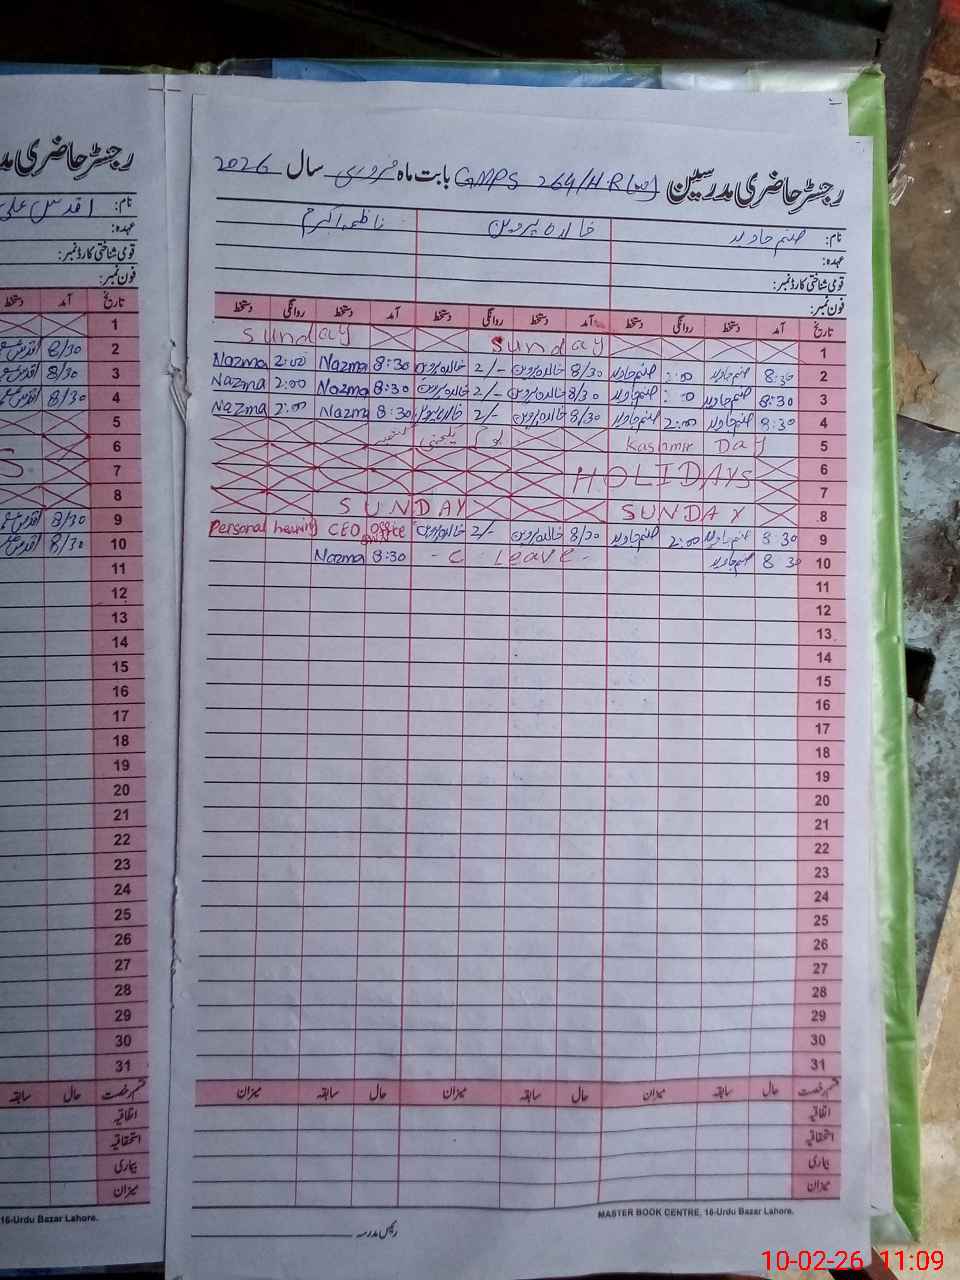 رجسٹر حاضری مدرسین GMPS 264/HR بابت ماہ فروری سال 2026
نام: صنم جاوید خالدہ پروین ناظمہ اکرم
عہدہ:
قومی شناختی کارڈ نمبر:
فون نمبر:
تاریخ آمد دستخط روانگی دستخط آمد دستخط روانگی دستخط آمد دستخط روانگی دستخط
1 Sunday Sunday
2 8:30 صنم جاوید 2:00 صنم جاوید 8/30 خالدہ پروین 2/- خالدہ پروین 8:30 Nazma 2:00 Nazma
3 8:30 صنم جاوید صنم جاوید 8/30 خالدہ پروین 2/- خالدہ پروین 8:30 Nazma 2:00 Nazma
4 8:30 صنم جاوید 2:00 صنم جاوید 8/30 خالدہ پروین 2/- خالدہ پروین 8:30 Nazma 2:00 Nazma
5 Kashmir Day یوم یکجہتی کشمیر
6 HOLIDAYS
7
8 SUNDAY SUNDAY
9 8:30 صنم جاوید 2:00 صنم جاوید 8/30 خالدہ پروین 2/- خالدہ پروین Personal hearing CEO office
10 8:30 صنم جاوید - C Leave - 8:30 Nazma
11
12
13
14
15
16
17
18
19
20
21
22
23
24
25
26
27
28
29
30
31
قسم رخصت حال سابقہ میزان حال سابقہ میزان حال سابقہ میزان
اتفاقیہ
استحقاقیہ
بیماری
میزان
MASTER BOOK CENTRE, 16-Urdu Bazar Lahore.
رئیس مدرسہ
رجسٹر حاضری مد
نام: اقدس علی
عہدہ:
قومی شناختی کارڈ نمبر:
فون نمبر:
تاریخ آمد دستخط
1
2 8/30
3 8/30
4 8/30
5
6
7 S
8
9 8/30
10 8/30
11
12
13
14
15
16
17
18
19
20
21
22
23
24
25
26
27
28
29
30
31
قسم رخصت حال سابقہ
اتفاقیہ
استحقاقیہ
بیماری
میزان
16-Urdu Bazar Lahore.
10-02-26 11:09